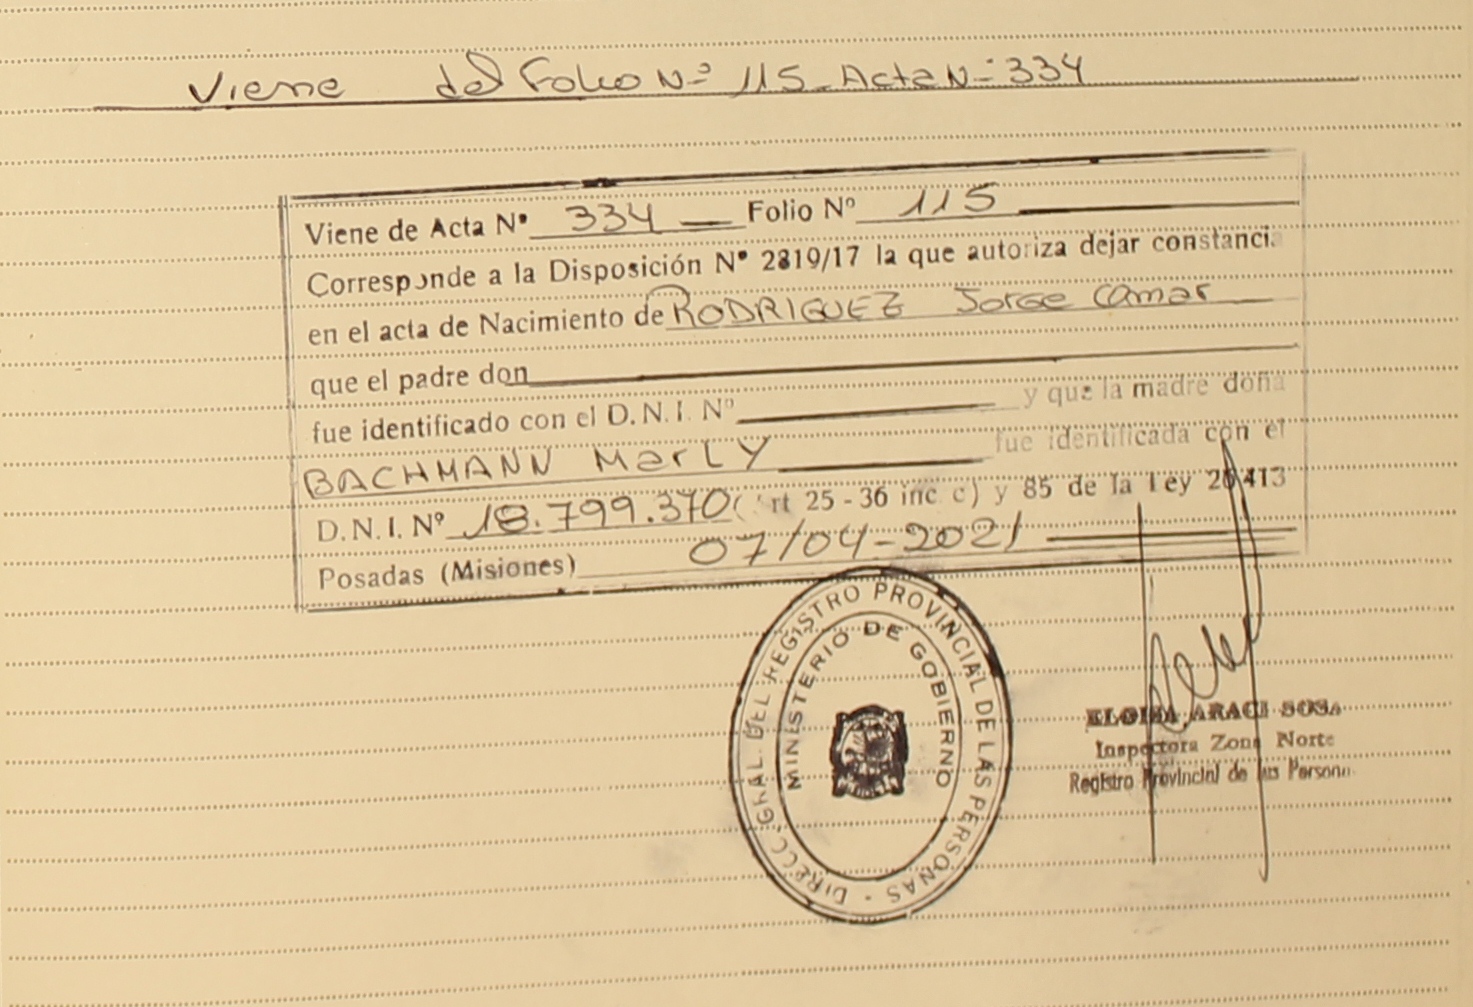 Viene del Folio Nº 115 - Acta Nº 334
Viene de Acta Nº 334 Folio Nº 115
Corresponde a la Disposición Nº 2819/17 la que autoriza dejar constancia
en el acta de Nacimiento de RODRIGUEZ Jorge Omar
que el padre don
fue identificado con el D.N.I. Nº y que la madre doña
BACHMANN MarLY fue identificada con el
D.N.I. Nº 18.799.370 (Art 25 - 36 inc c) y 85 de la ley 26413
Posadas (Misiones) 07/04-2021
DIRECC. GRAL. DEL REGISTRO PROVINCIAL DE LAS PERSONAS -
MINISTERIO DE GOBIERNO
ELOISA ARACI SOSA
Inspectora Zona Norte
Registro Provincial de las Persona